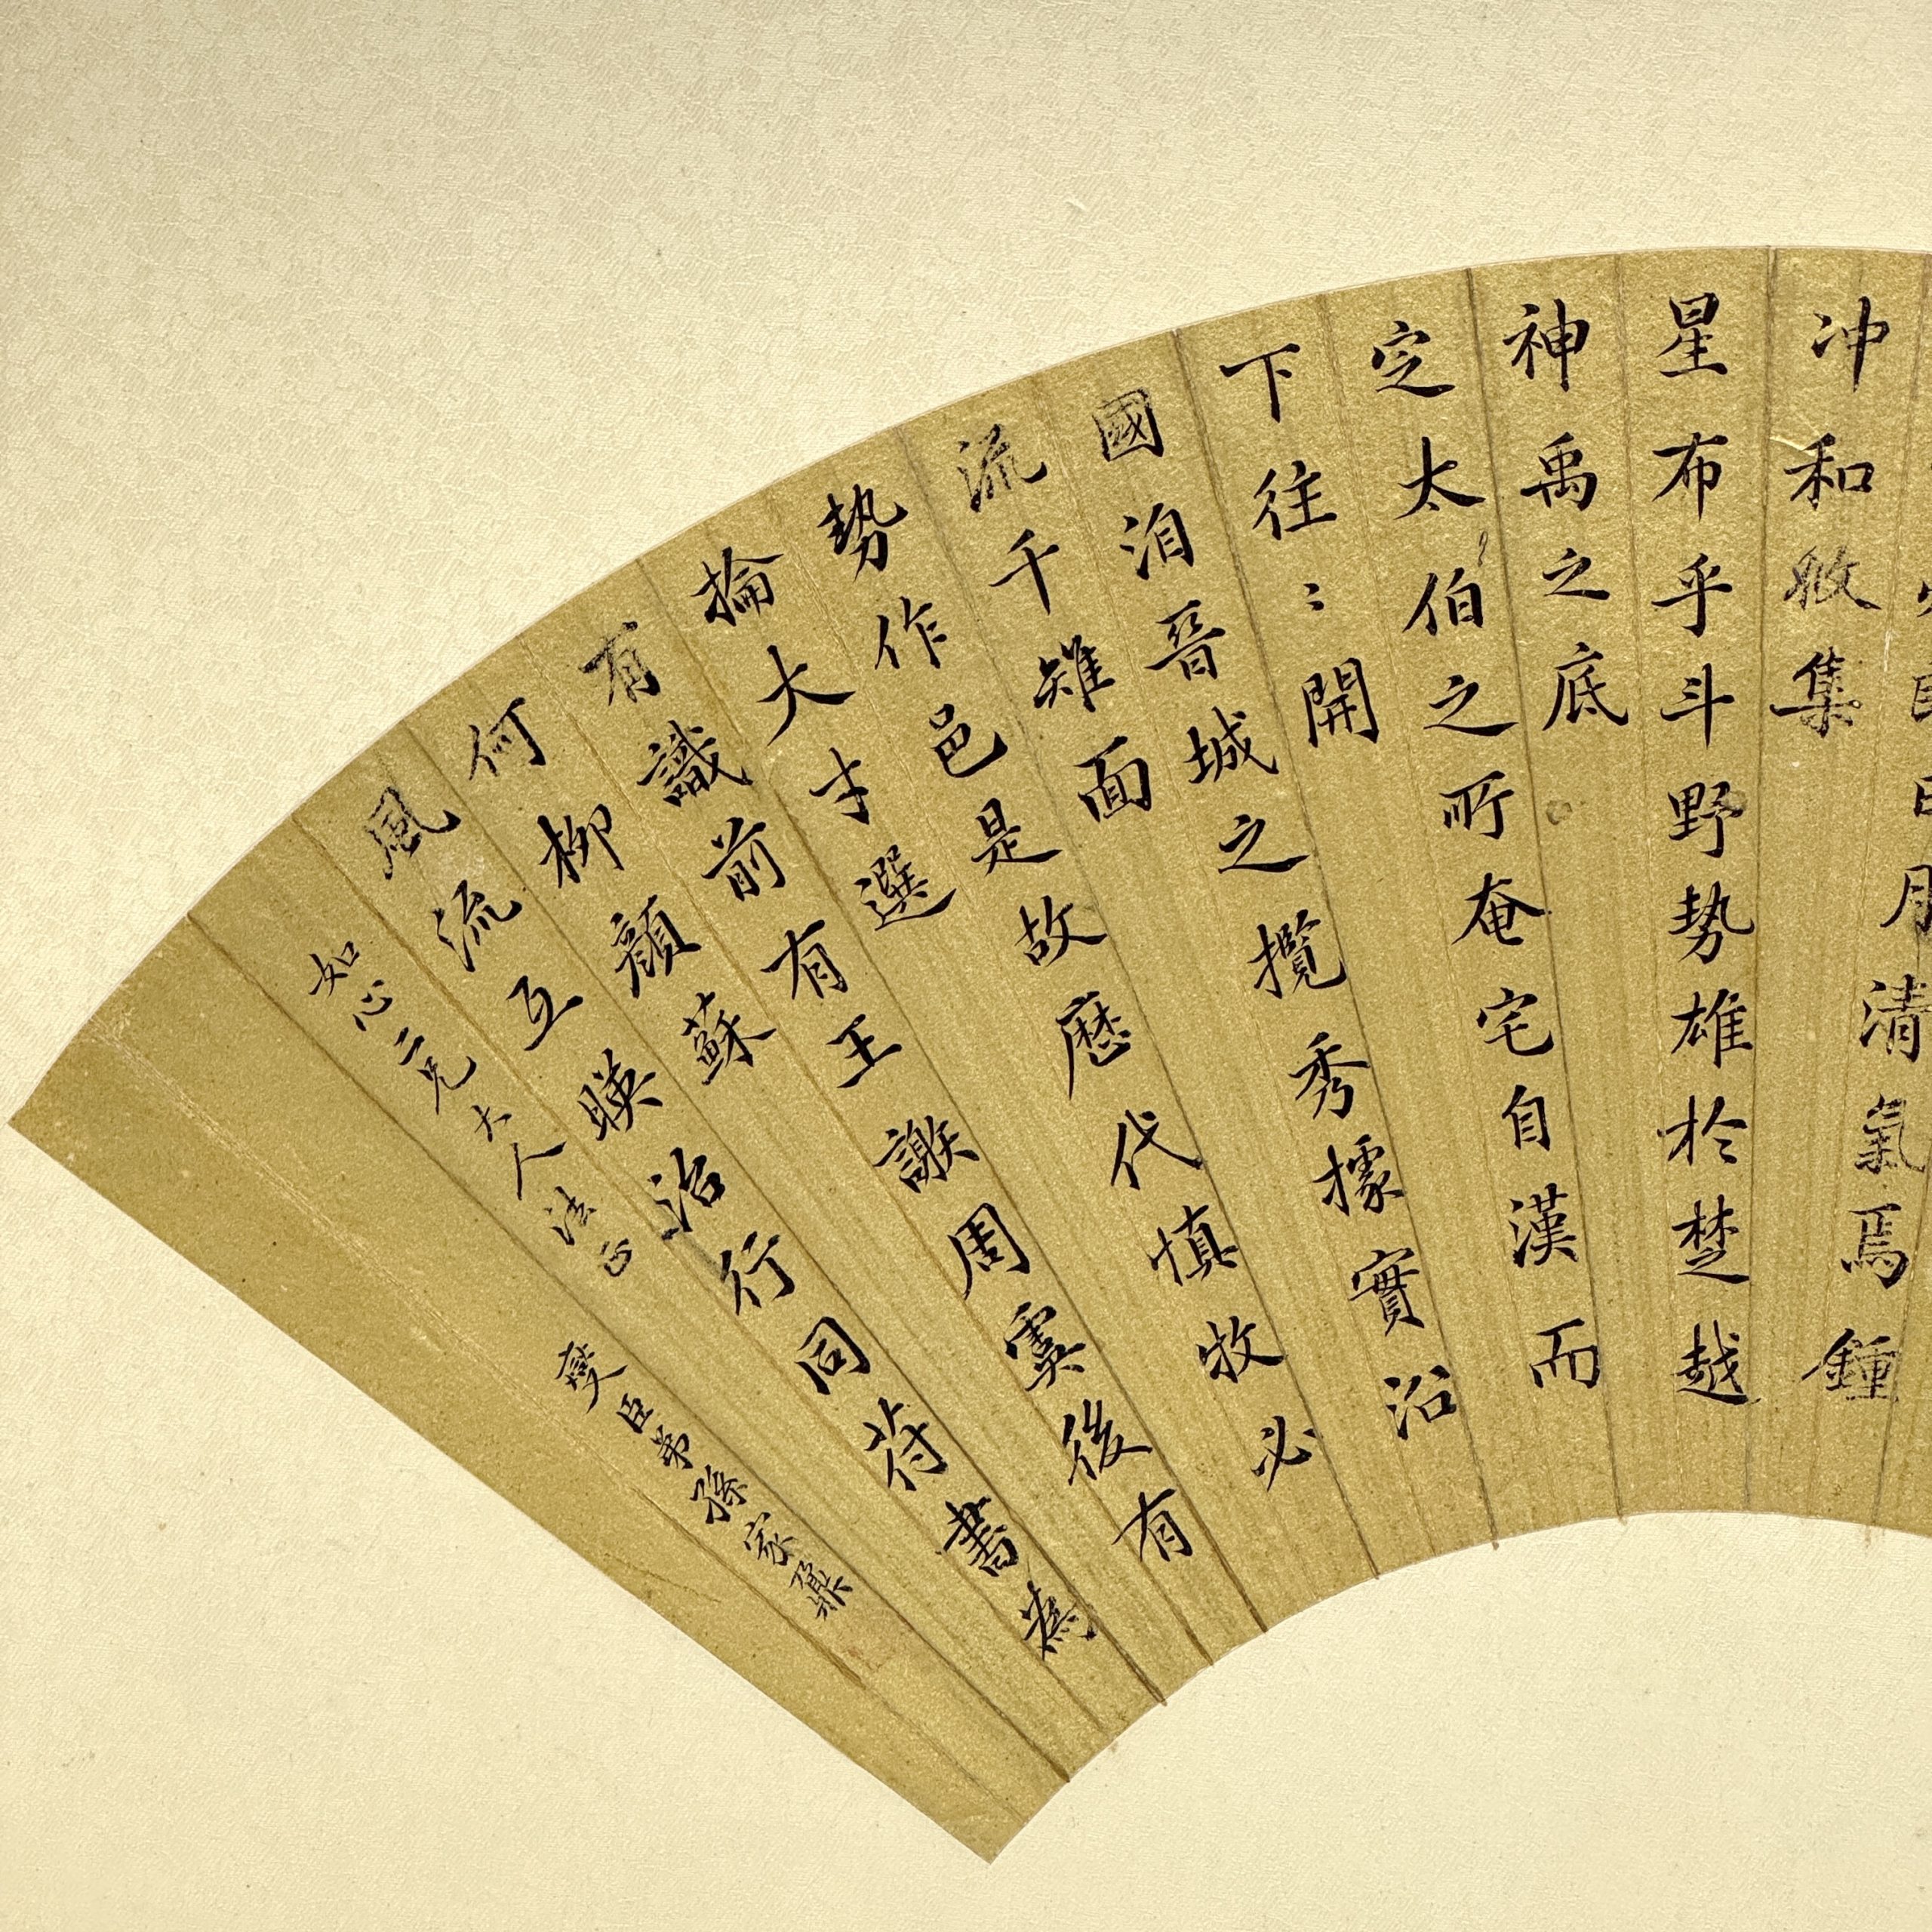 月清氣焉鍾
冲和攸集
星布乎斗野勢雄於楚越
神禹之底
定太伯之所奄宅自漢而
下往〻開
國洎晉城之攬秀據實沿
流千雉面
勢作邑是故歷代慎牧必
掄大才選
有識前有王謝周虞後有
何柳顏蘇
風流互暎治行同苻書為
如心二兄大人法正
燮臣弟孫家鼐